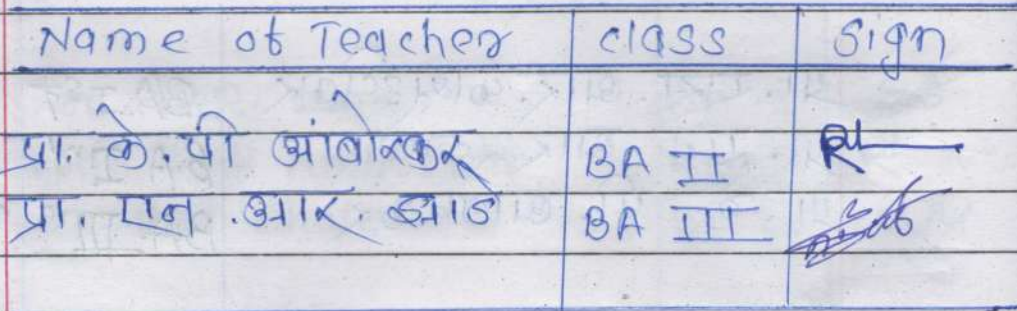 Name of Teacher class Sign
प्रा. के. पी आंबोरकर BA II
प्रा. एन. आर. झाडे BA III